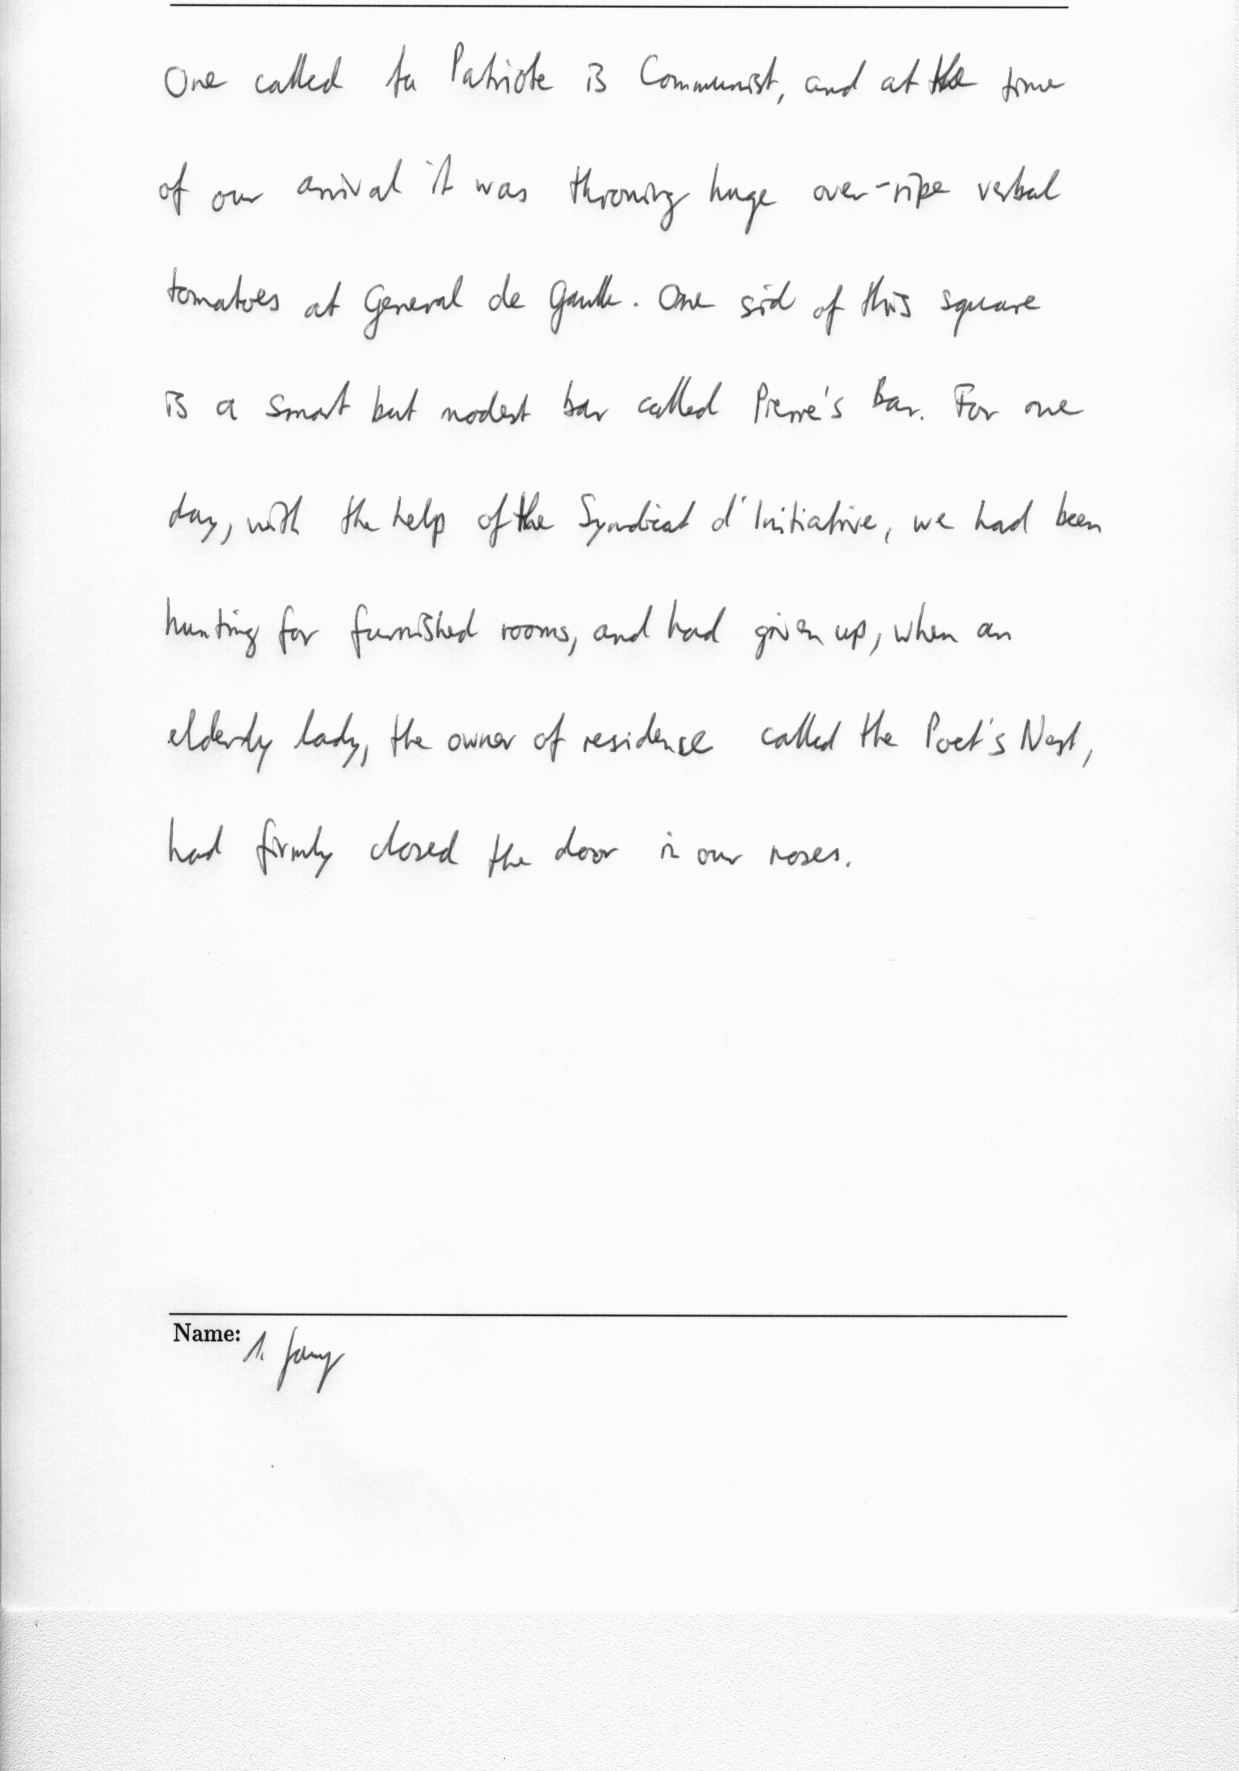 One called the Patriote is Communist, and at the time
of our arrival it was throwing huge over-ripe verbal
tomatoes at General de Gaulle. One sid of this square
is a smart but modest bar called Pierre's Bar. For one
day, with the help of the Syndicat d'Initiative, we had been
hunting for furnished rooms, and had given up, when an
elderly lady, the owner of residence called the Poet's Nest,
had firmly closed the door in our noses.
Name: